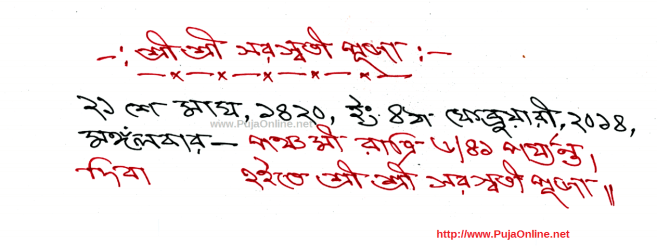 —: শ্রী শ্রী সরস্বতী পূজা :—
২১ শে মাঘ, ১৪২০, ইং ৪ঠা ফেব্রুয়ারী, ২০১৪,
www.PujaOnline.net
মঙ্গলবার— পঞ্চমী রাত্রি ৬/৪১ পর্য্যন্ত,
দিবা হইতে শ্রী শ্রী সরস্বতী পূজা॥
http://www.PujaOnline.net